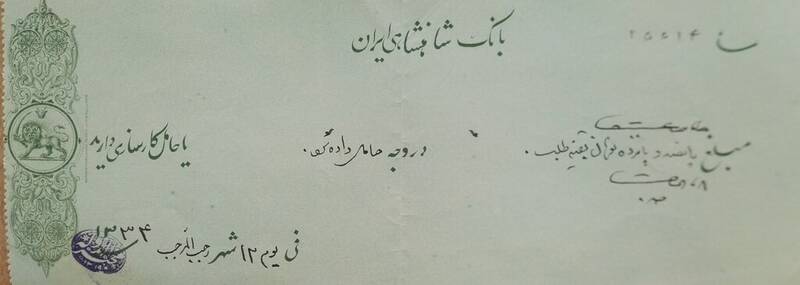 بانک شاهنشاهی ایران
مبلغ پانصد و پانزده تومان بقیه طلب. در وجه حامل داده شود. یا حامل کارسازی دارید
فی یوم ۱۲ شهر رجب المرجب ۱۳۳۴